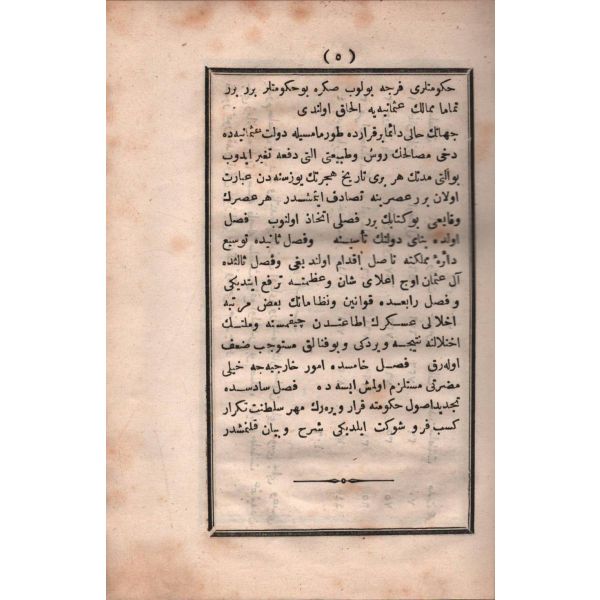 ( ٥ )
حكومتلرى فرجه بولوب صكره بوحكومتلر برر برر
تماما ممالك عثمانيه يه الحاق اولندى
جهانك حالى دائما برقرارده طورمامسيله دولت عثمانيه ده
دخى مصالحك روش وطبيعتى التى دفعه تغير ايدوب
بوالتى مدتك هر برى تاريخ هجرتك يوزسنه دن عبارت
اولان برر عصرينه تصادف ايتمشدر هر عصرك
وقايعى بوكتابك برر فصلى اتخاذ اولنوب فصل
اولده بناى دولتك تأسيسنه وفصل ثانيده توسيع
دائره مملكته ناصل اقدام اولنديغى وفصل ثالثده
آل عثمان اوج اعلاى شان وعظمته ترفع ايتديكى
وفصل رابعده قوانين ونظاماتك بعض مرتبه
اخلالى عسكرك اطاعتدن چيقمسنه وملتك
اختلالنه نتيجه ويردكى وبوفنالق مستوجب ضعف
اوله رق فصل خامسده امور خارجيه جه خيلى
مضرتى مستلزم اولمش ايسه ده فصل سادسده
تجديد اصول حكومته قرار ويره رك مهر سلطنت تكرار
كسب فر وشوكت ايلديكى شرح وبيان قلنمشدر